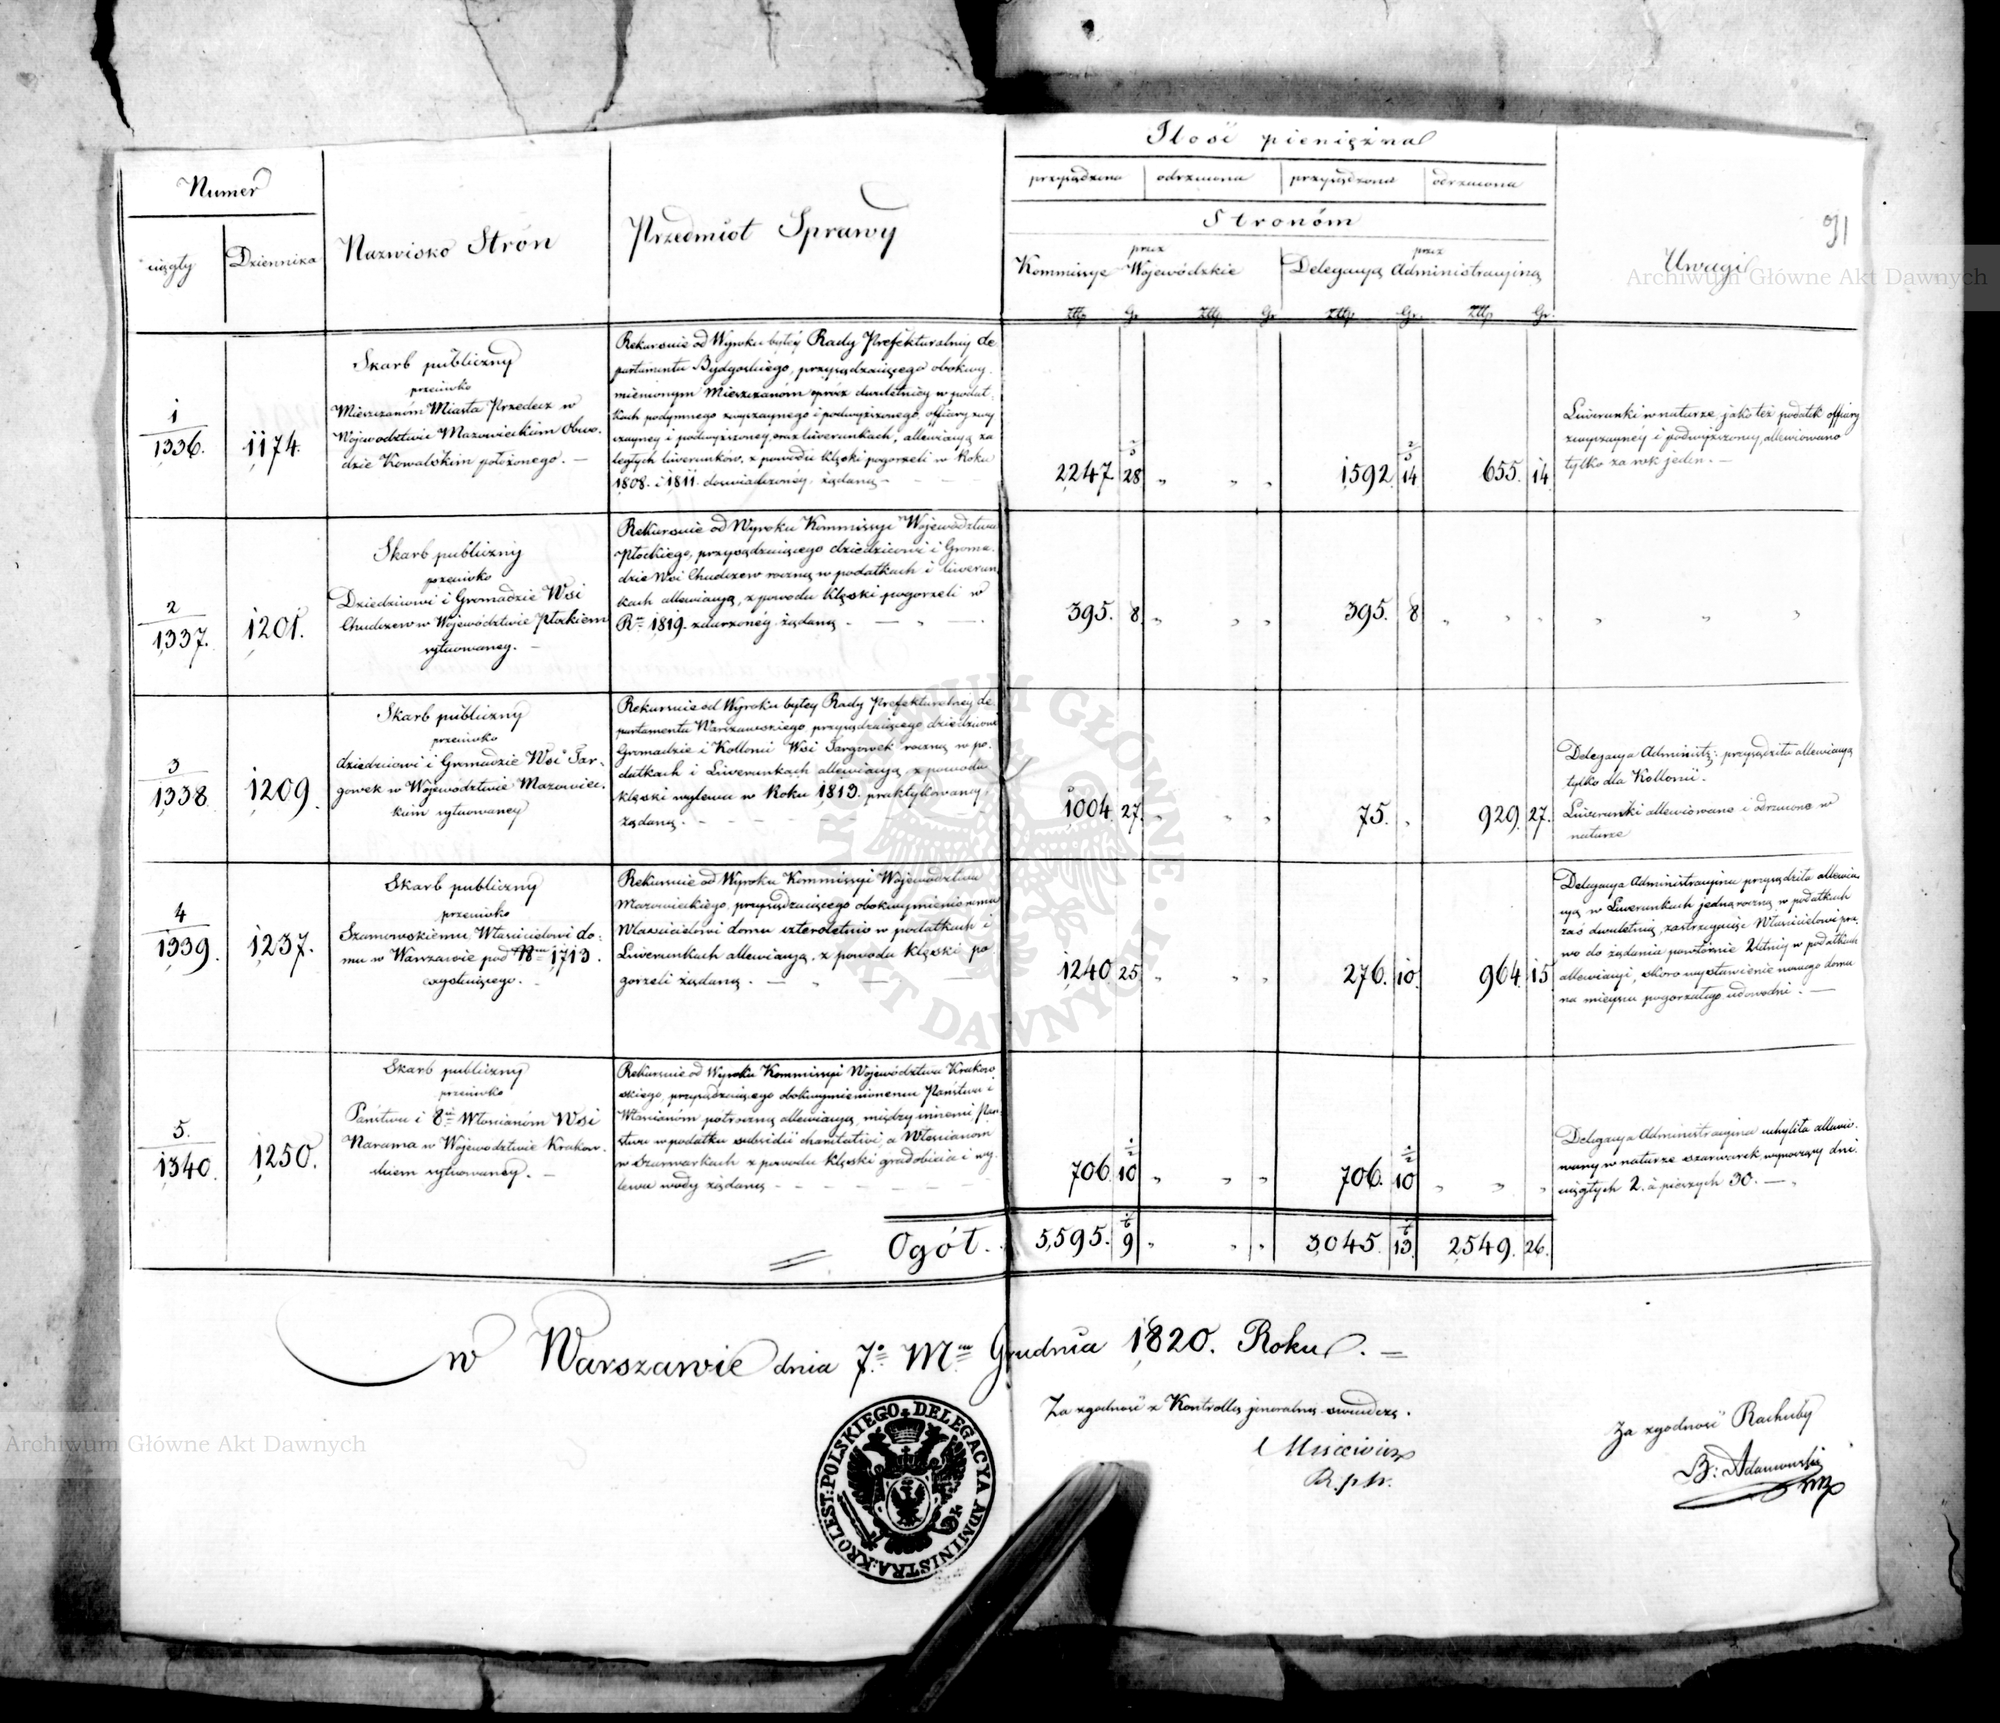 Numer
ciągły
Dziennika
Nazwisko Strón
Przedmiot Sprawy
Ilość pieniężna
przysądzona
odrzucona
przysądzona
odrzucona
Stronóm
przez
Kommissye Wojewódzkie
przez
Delegacyą Administracyiną
Złp
Gr
Złp
Gr
Złp
Gr.
Złp
Gr.
Uwagi
91
1
1336.
1174.
Skarb publiczny
przeciwko
Mieszczanóm Miasta Przedecz w
Województwie Mazowieckim Obwo-
dzie Kowalskim położonego. —
Rekursuie od Wyroku byłey Rady Prefekturalnéy de
partamentu Bydgoskiego, przysądzaiącego obokwy-
mienionym Mieszczanóm oprócz dwuletniéy w podat-
kach podymnego zwyczaynego i podwyższonego, offiary zwy
czaynéy i podwyższonéy, oraz liwerunkach, allewiacyą za
ległych liwerunków, z powodu klęski pogorzeli w Roku
1808. i 1811. doświadczonéy, żądaną —
2247 28 2/3
1592. 14 2/3
655. 14
Liwerunki w naturze, jako też podatek offiary
zwyczaynéy i podwyższonéy, allewiowano
tylko za rok jeden. —
2
1337.
1201.
Skarb publiczny
przeciwko
Dziedzicowi i Gromadzie Wsi
Chudzew w Województwie Płockiem
sytuowaney. —
Rekursuie od Wyroku Kommissyi Województwa
Płockiego, przysądzaiącego dziedzicowi i Groma-
dzie Wsi Chudzew roczną w podatkach i liwerun
kach allewiacyą, z powodu klęski pogorzeli w
Ru 1819. zdarzonéy żądaną. —
395. 8
395. 8
3
1338
1209.
Skarb publiczny
przeciwko
dziedzicowi i Gromadzie Wsi Tar-
gowek w Województwie Mazowiec-
kim sytuowaney
Rekursuie od Wyroku byłey Rady Prefekturalney de
partamentu Warszawskiego, przysądzaiącego dziedzicowi
Gromadzie i Kollonii Wsi Targowek roczną w po-
datkach i Liwerunkach allewiacyą, z powodu
klęski wylewu w Roku 1813. praktykowaney
żądaną. —
1004. 27.
75.
929. 27.
Delegacya Administ: przysądziła allewiacyą
tylko dla Kollonii.
Liwerunki allewiowano i odrzucono w
naturze
4
1339.
1237.
Skarb publiczny
przeciwko
Szamowskiemu Właścicielowi do-
mu w Warszawie pod Nrm 1713.
Rekursuie od Wyroku Kommissyi Województwa
Mazowieckiego, przysądzaiącego obokwymienionemu
Właścicielowi domu czteroletnio w podatkach i
Liwerunkach allewiacyą, z powodu klęski po
gorzeli żądaną. —
1240 25
276. 10.
964. 15
Delegacya Administracyina przysądziła allewia
cyą w Liwerunkach jednąroczną, w podatkach
zaś dwuletnią, zastrzegaiąc Właścicielowi pra-
wo do żądania powtórnie 2letniéy w podatkach
allewiacyi, skoro wystawienie nowego domu
na mieyscu pogorzałego udowodni. —
5.
1340.
1250.
Skarb publiczny
przeciwko
Państwu i 8m Włościanóm Wsi
Narama w Województwie Krakow-
skiem sytuowaney. —
Rekursuie od Wyroku Kommissyi Województwa Krakow
skiego, przysądzaiącego obokwymienionemu Państwu i
Włościanóm półroczną allewiacyą, między innemi Pań-
stwu w podatku subsidii charitativi, a Włościanom
w Szarwarkach z powodu klęski gradobicia i wy-
lewu wody żądaną —
706. 10 1/2
706. 10 1/2
Delegacya Administracyina uchyliła allewio-
wany w naturze szarwarek wynoszący dni
ciągłych 2. a pieszych 30. —
Ogół.
5,595. 9 1/6
3045. 13 1/6
2549. 26.
w Warszawie dnia 7o Mca Grudnia 1820. Roku. —
Za zgodność z Kontrollą jeneralną świadczę.
Za zgodność Rachuby
B: Adamowski
KROLEST: POLSKIEGO DELEGACYA ADMINISTRA:
Archiwum Główne Akt Dawnych
Archiwum Główne Akt Dawnych
ARCHIWUM GŁÓWNE AKT DAWNYCH